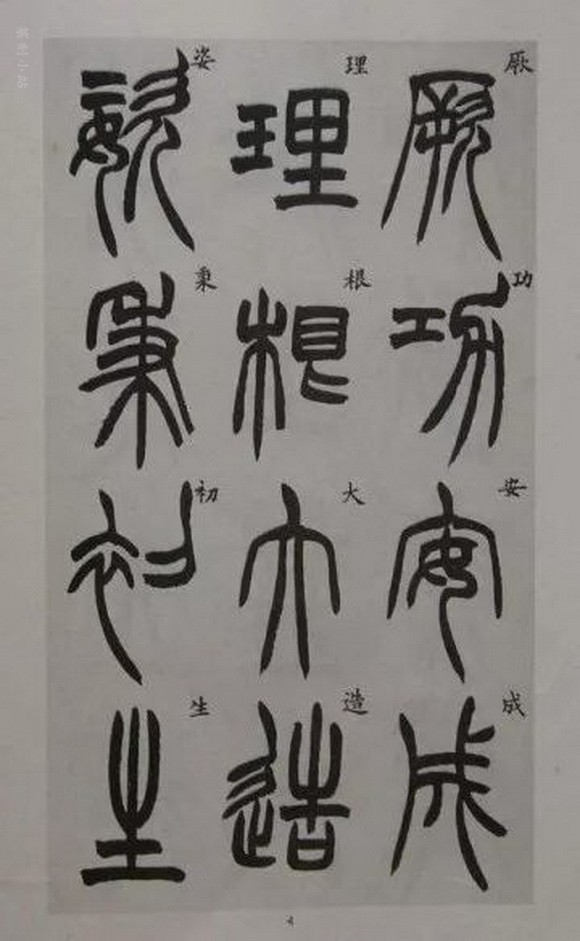 厥功安成
理根大造
姿秉初生
4